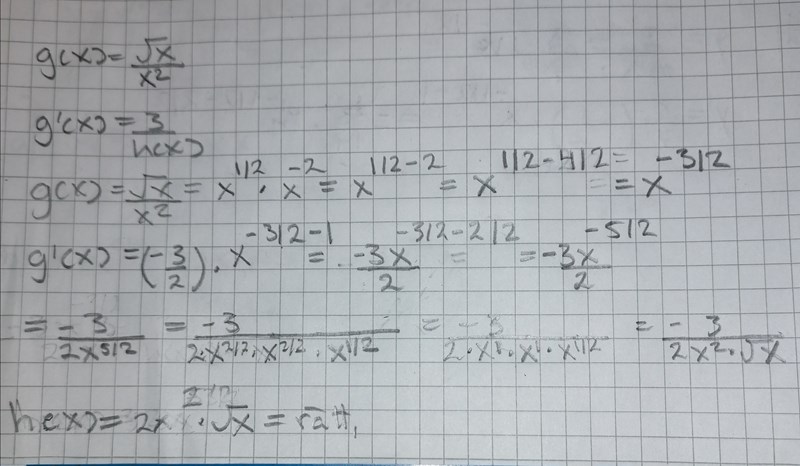 g(x) = √x / x²
g'(x) = 3 / h(x)
g(x) = √x / x² = x^1/2 · x^-2 = x^1/2-2 = x^1/2-4/2 = = x^-3/2
g'(x) = (-3/2) · x^-3/2-1 = -3x^-3/2-2/2 / 2 = = -3x^-5/2 / 2
= -3 / 2x^5/2 = -3 / 2·x^2/2·x^2/2·x^1/2 = -3 / 2·x¹·x¹·x^1/2 = -3 / 2x²·√x
h(x) = 2x² · √x = rätt,